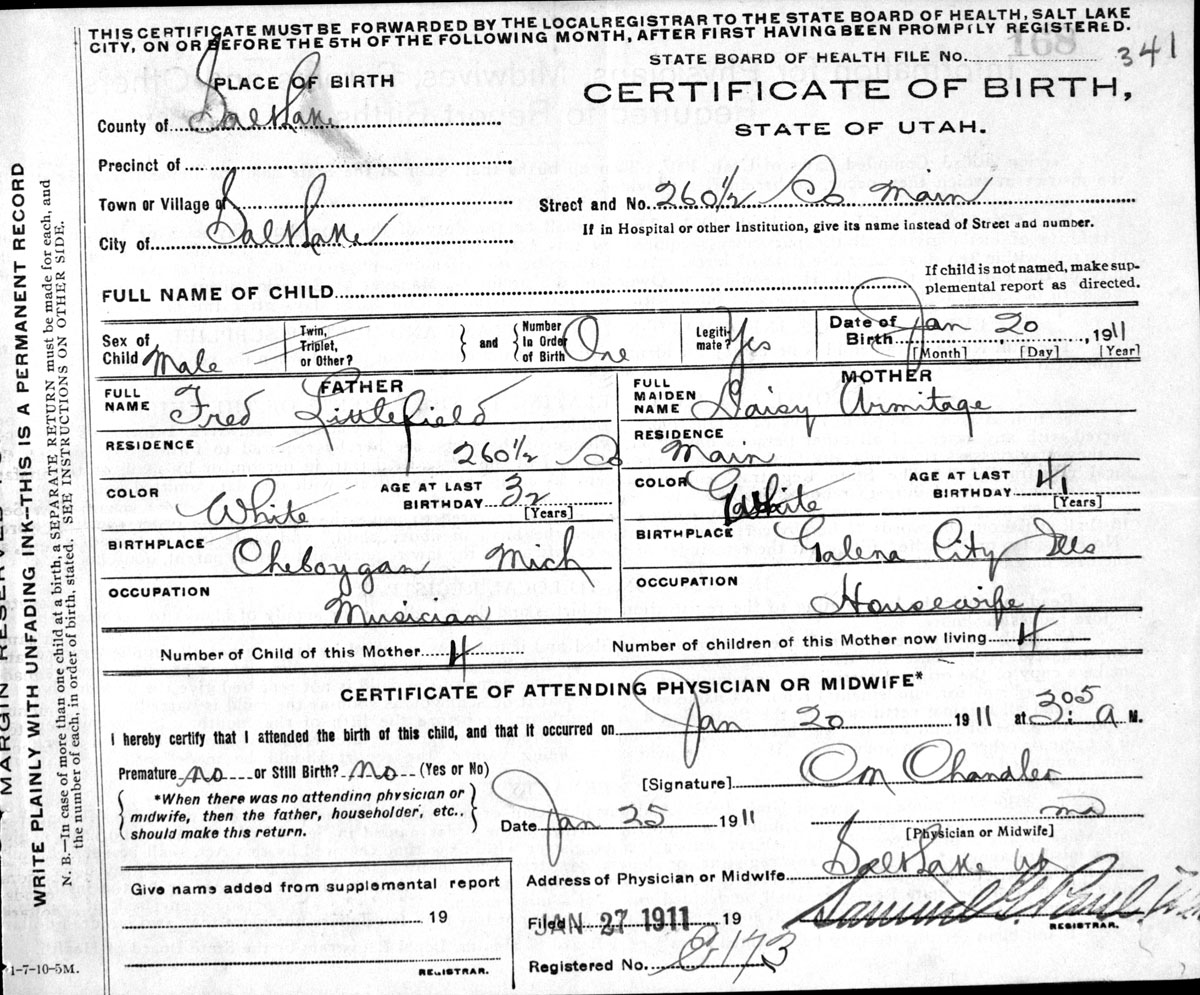 THIS CERTIFICATE MUST BE FORWARDED BY THE LOCAL REGISTRAR TO THE STATE BOARD OF HEALTH, SALT LAKE
CITY, ON OR BEFORE THE 5TH OF THE FOLLOWING MONTH, AFTER FIRST HAVING BEEN PROMPILY REGISTERED.
168
STATE BOARD OF HEALTH FILE No. 341
PLACE OF BIRTH
CERTIFICATE OF BIRTH,
STATE OF UTAH.
County of Salt Lake
Precinct of
Town or Village of
Street and No. 260 1/2 So Main
City of Salt Lake
If in Hospital or other Institution, give its name instead of Street and number.
FULL NAME OF CHILD
If child is not named, make sup-
plemental report as directed.
Sex of Child Male
Twin, Triplet, or Other?
and
Number In Order of Birth One
Legiti-mate? Yes
Date of Birth Jan 20, 1911
[Month] [Day] [Year]
FATHER
FULL NAME Fred Littlefield
MOTHER
FULL MAIDEN NAME Daisy Armitage
RESIDENCE 260 1/2 So
RESIDENCE Main
COLOR White
AGE AT LAST BIRTHDAY 32
[Years]
COLOR White
AGE AT LAST BIRTHDAY 41
[Years]
BIRTHPLACE Cheboygan Mich
BIRTHPLACE Galena City Ills
OCCUPATION Musician
OCCUPATION Housewife
Number of Child of this Mother 4
Number of children of this Mother now living 4
CERTIFICATE OF ATTENDING PHYSICIAN OR MIDWIFE*
I hereby certify that I attended the birth of this child, and that it occurred on Jan 20 1911 at 3:05 A. M.
Premature no or Still Birth? no (Yes or No)
[Signature] Om Chandler
*When there was no attending physician or
midwife, then the father, householder, etc.,
should make this return.
Date Jan 25 1911
md
[Physician or Midwife]
Address of Physician or Midwife Salt Lake
Give name added from supplemental report
19
REGISTRAR.
Filed JAN 27 1911 19
Samuel G. Paul
REGISTRAR.
Registered No. C-173
1-7-10-5M.
MARGIN RESER
WRITE PLAINLY WITH UNFADING INK-THIS IS A PERMANENT RECORD
N. B.—In case of more than one child at a birth, a SEPARATE RETURN must be made for each, and
the number of each, in order of birth, stated. SEE INSTRUCTIONS ON OTHER SIDE.